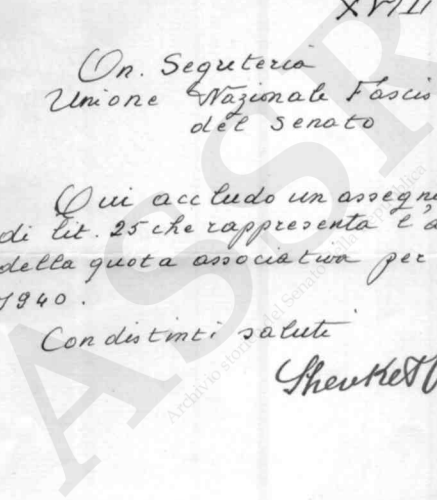 XVIII
On. Segreteria
Unione Nazionale Fascis
del Senato
Qui accludo un assegn
di Lit. 25 che rappresenta l'a
della quota associativa per
1940.
Con distinti saluti
Shevket
ASSR
Archivio storico del Senato della Repubblica